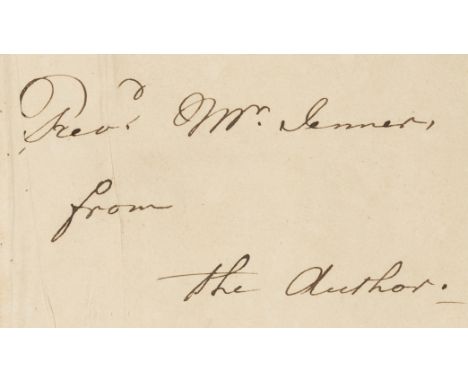 Revd. Mr. Jenner,
from
the Author.